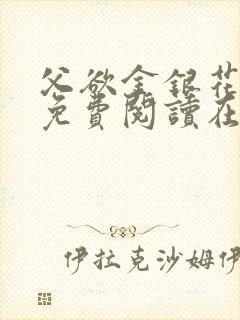 父欲金銀花
免費閱讀在
伊拉克沙姆伊